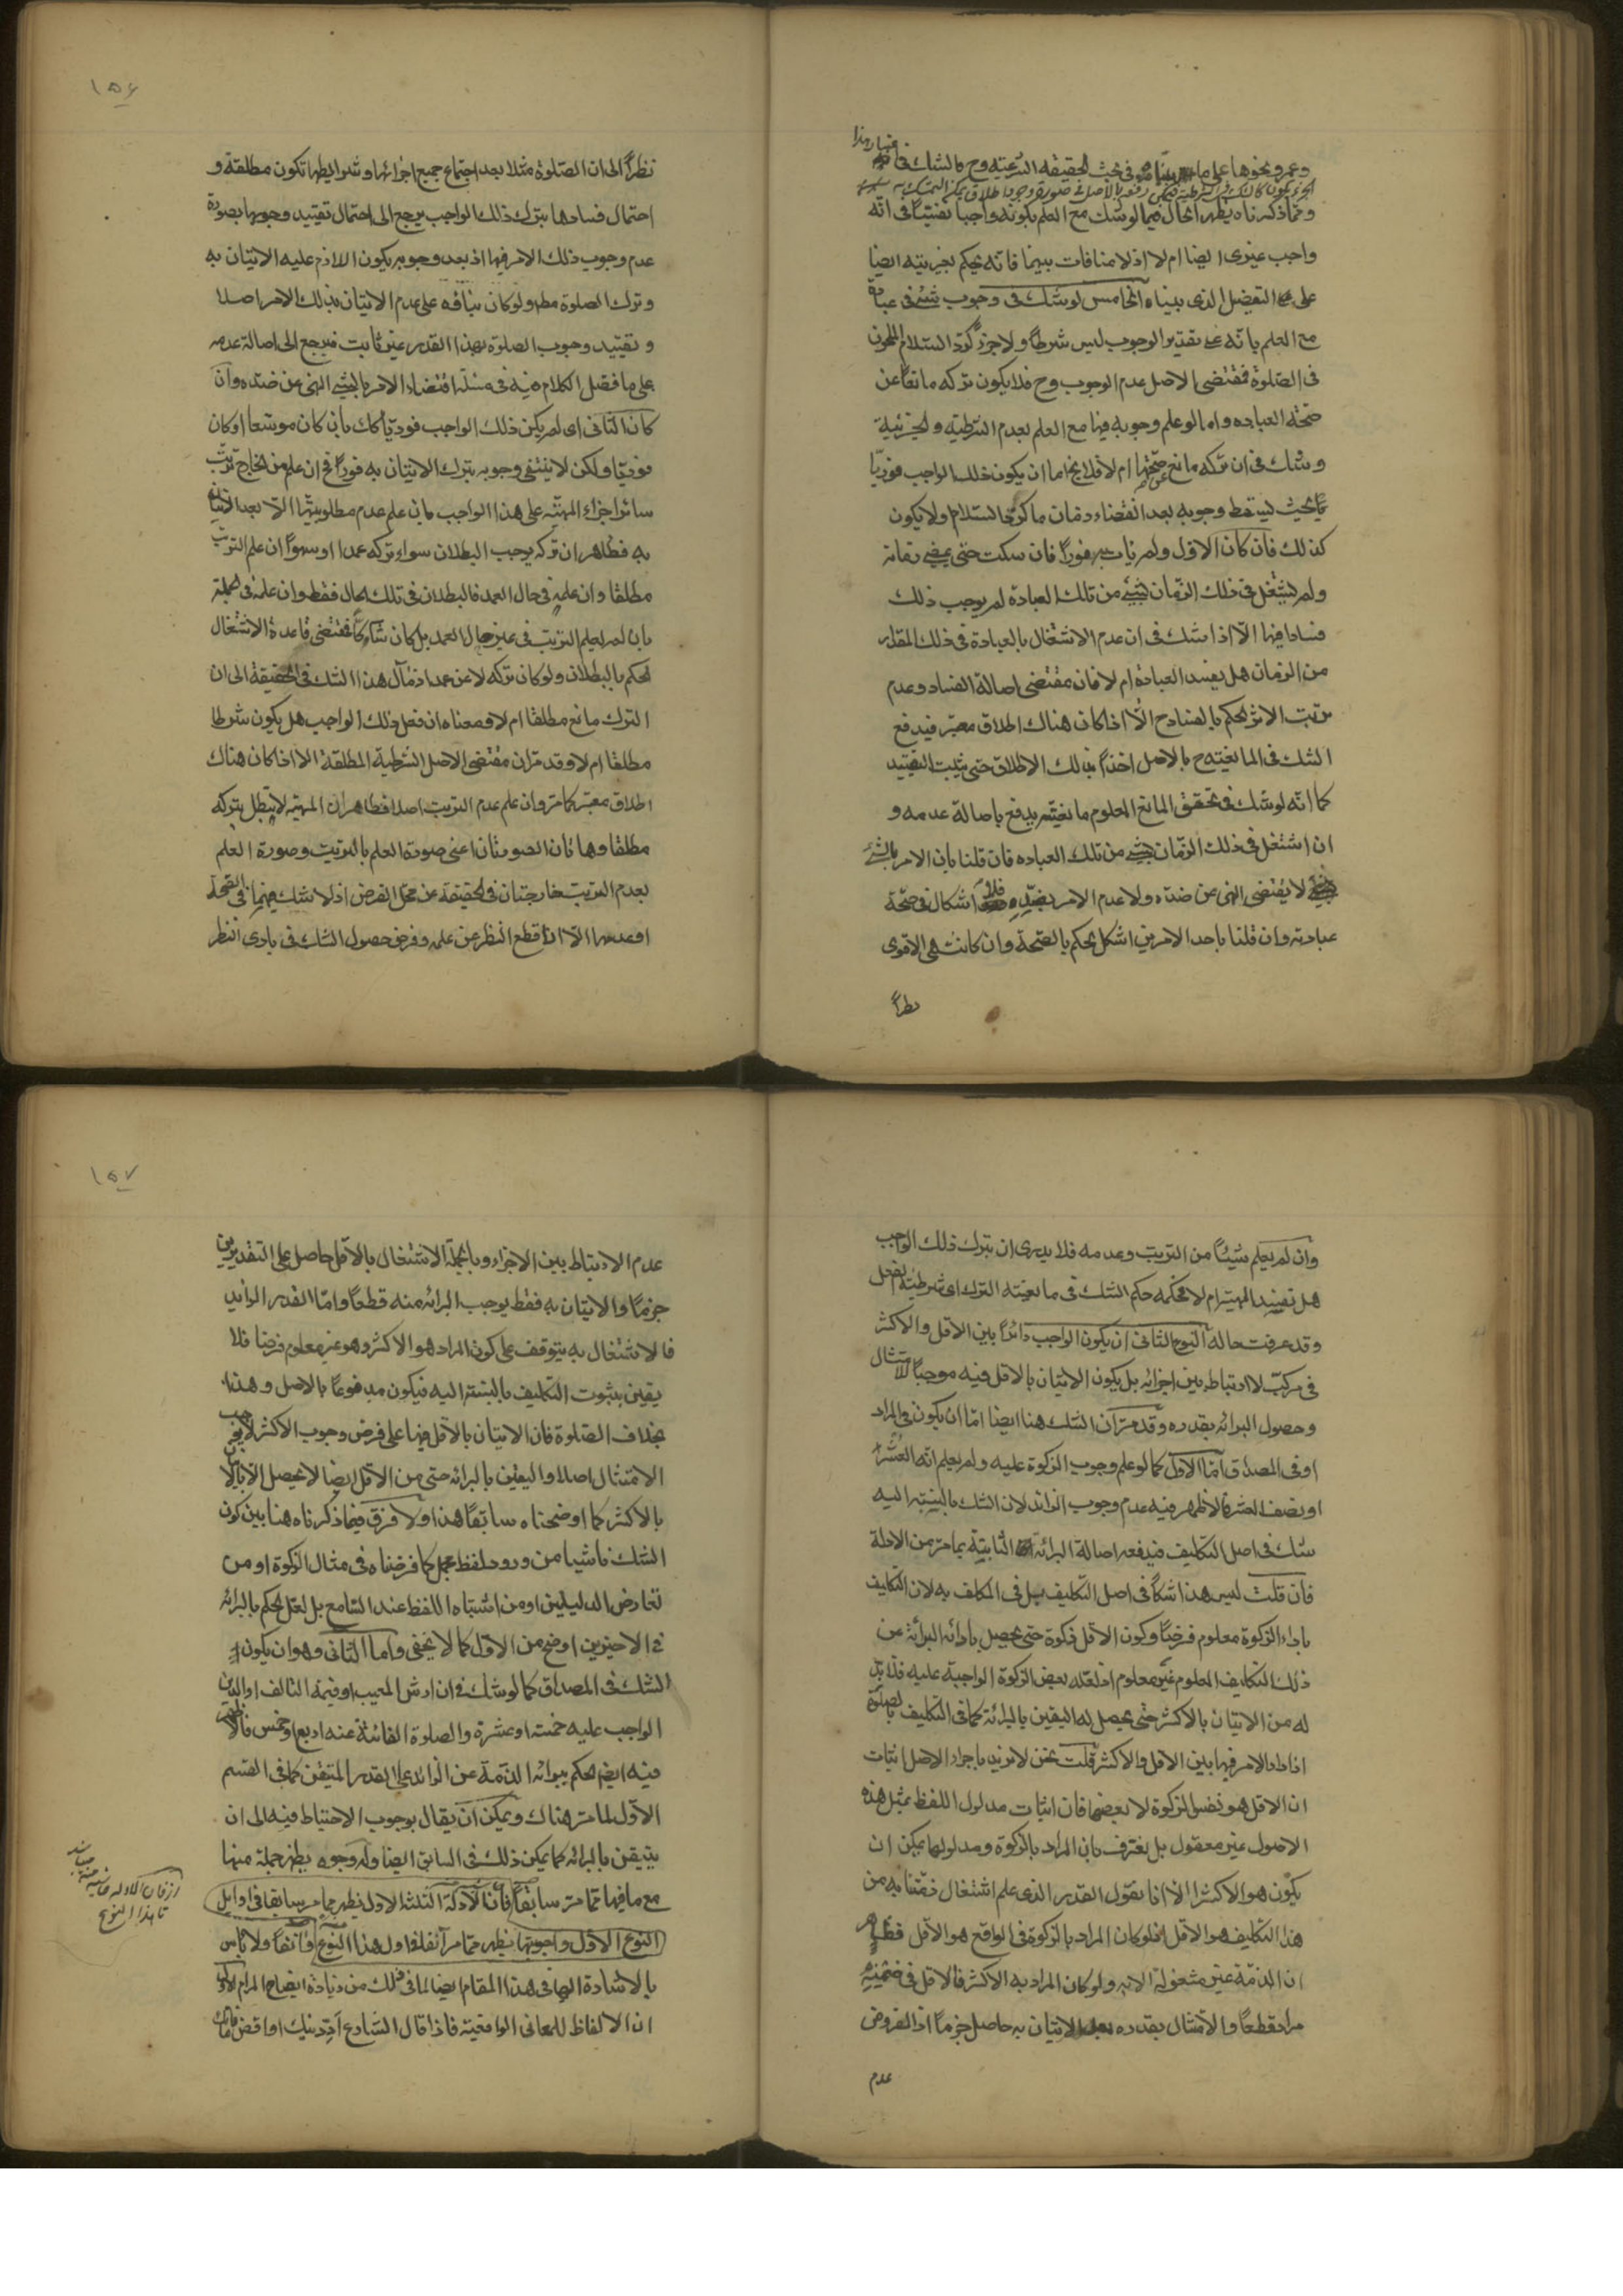 وعمرو ونحوها على ما بيناه في بحث الحقيقة الشرعية وح فالشك في
ومما ذكرناه يظهر الحال فيما لو شك مع العلم بكونه واجبا نفسيا في انه
واجب غيرى ايضا ام لا اذ لا منافات بينهما فانه يحكم بغيريته ايضا
على التفصيل الذى بيناه الخامس لو شك في وجوب شئ في عبادة
مع العلم بانه على تقدير الوجوب ليس شرطا ولا جزء كرد السلام
في الصلوة فمقتضى الاصل عدم الوجوب وح فلا يكون تركه مانعا عن
صحة العبادة واما لو علم وجوبه فيها مع العلم بعدم الشرطية والجزئية
وشك في ان تركه مانع عن صحتها ام لا فلا يخ اما ان يكون ذلك الواجب فوريا
بحيث يسقط وجوبه بعد انقضاء زمان ما كرد السلام ولا يكون
كذلك فان كان الاول ولم يأت به فورا فان سكت حتى يمضى زمانه
ولم يشتغل في ذلك الزمان بشئ من تلك العبادة لم يوجب ذلك
فسادا فيها الا اذا شك في ان عدم الاشتغال بالعبادة في ذلك المقدار
من الزمان هل يفسد العبادة ام لا فان مقتضى اصالة الفساد وعدم
ترتب الاثر الحكم بالفساد ح الا اذا كان هناك اطلاق معتبر فيدفع
الشك في المانعية ح بالاصل اخذا بذلك الاطلاق حتى يثبت التقييد
كما انه لو شك في تحقق المانع المعلوم مانعيته يدفع باصالة عدمه و
ان اشتغل في ذلك الزمان بشئ من تلك العبادة فان قلنا بان الامر بالشئ
لا يقتضى النهى عن ضده ولا عدم الامر بضده فلا اشكال في صحة
عبادته وان قلنا باحد الامرين اشكل الحكم بالصحة وان كانت هى الاقوى
نظرا
١٥٦
نظرا الى ان الصلوة مثلا بعد اجتماع جميع اجزائها وشرايطها تكون مطلقة و
احتمال فسادها بترك ذلك الواجب يرجع الى احتمال تقييد وجوبها بصورة
عدم وجوب ذلك الامر فيها اذ بعد وجوبه يكون اللازم عليه الاتيان به
وترك الصلوة مط ولو كان بناؤه على عدم الاتيان بذلك الامر اصلا
وتقييد وجوب الصلوة بهذا القدر غير ثابت فيرجع الى اصالة عدمه
على ما فصل الكلام فيه في مسئلة اقتضاء الامر بالشئ النهى عن ضده وان
كان الثانى اى لم يكن ذلك الواجب فوريا كك بان كان موسعا او كان
فوريا ولكن لا ينتفى وجوبه بترك الاتيان به فورا فح ان علم من الخارج ترتب
سائر اجزاء المهية على هذا الواجب بان علم عدم مطلوبيتها الا بعد الاتيان
به فظاهر ان تركه يوجب البطلان سواء تركه عمدا او سهوا ان علم الترتب
مطلقا وان علمه في حال العمد فالبطلان في تلك الحال فقط وان علمه في الجملة
بان لم يعلم الترتب في غير حال العمد بل كان شاكا فمقتضى قاعدة الاشتغال
الحكم بالبطلان ولو كان تركه لا عن عمد اذ مآل هذا الشك في الحقيقة الى ان
الترك مانع مطلقا ام لا ومعناه ان فعل ذلك الواجب هل يكون شرطا
مطلقا ام لا وقد مر ان مقتضى الاصل الشرطية المطلقة الا اذا كان هناك
اطلاق معتبر كما مر وان علم عدم الترتب اصلا فظاهر ان المهية لا يبطل بتركه
مطلقا وهاتان الصورتان اعنى صورة العلم بالترتيب وصورة العلم
بعدم الترتيب خارجتان في الحقيقة عن محل الفرض اذ لا شك فيهما في الصحة
او عدمها الا ان اقطع النظر عن علمه وفرض حصول الشك في بادى النظر
وان لم يعلم شيئا من الترتيب وعدمه فلا يدرى ان بترك ذلك الواجب
هل تفسد المهية ام لا فحكمه حكم الشك في مانعية الترك اى شرطية الفعل
وقد عرفت حاله النوع الثانى ان يكون الواجب دائرا بين الاقل والاكثر
في مركب لا ارتباط بين اجزائه بل يكون الاتيان بالاقل فيه موجبا للامتثال
وحصول البرائة بقدره وقد مر ان الشك هنا ايضا اما ان يكون في المراد
او في المصداق اما الاول كما لو علم وجوب الزكوة عليه ولم يعلم انه العشر
او نصف العشر فالاظهر فيه عدم وجوب الزائد لان الشك بالنسبة اليه
شك في اصل التكليف فيدفعه اصالة البرائة الثابتة بما مر من الادلة
فان قلت ليس هذا شكا في اصل التكليف بل في المكلف به لان التكليف
باداء الزكوة معلوم فرضا وكون الاقل زكوة حتى يحصل بادائه البرائة عن
ذلك التكليف المعلوم غير معلوم اذ لعله بعض الزكوة الواجبة عليه فلا بد
له من الاتيان بالاكثر حتى يحصل له اليقين بالبرائة كما في التكليف بالصلوة
اذا دار الامر فيها بين الاقل والاكثر قلت نحن لا نريد باجراء الاصل اثبات
ان الاقل هو نفس الزكوة لا بعضها فان اثبات مدلول اللفظ بمثل هذه
الاصول غير معقول بل نعترف بان المراد بالزكوة ومدلولها يمكن ان
يكون هو الاكثر الا انا نقول القدر الذى علم اشتغال ذمتنا به من
هذا التكليف هو الاقل اذ لو كان المراد بالزكوة في الواقع هو الاقل فظاهر
ان الذمة غير مشغولة الا به ولو كان المراد به الاكثر فالاقل في ضمنه
مراد قطعا والامتثال بقدره بعد الاتيان به حاصل جزما اذ المفروض
عدم
١٥٧
عدم الارتباط بين الاجزاء وبالجملة الاشتغال بالاقل حاصل على التقديرين
جزما والاتيان به فقط يوجب البرائة منه قطعا واما القدر الزائد
فالاشتغال به يتوقف على كون المراد هو الاكثر وهو غير معلوم فرضا فلا
يقين بثبوت التكليف بالنسبة اليه فيكون مدفوعا بالاصل وهذا
بخلاف الصلوة فان الاتيان بالاقل فيها على فرض وجوب الاكثر لا يوجب
الامتثال اصلا واليقين بالبرائة حتى من الاقل ايضا لا يحصل الا بالاتيان
بالاكثر كما اوضحناه سابقا هذا ولا فرق فيما ذكرناه هنا بين كون
الشك ناشيا من ورود لفظ مجمل كما فرضناه في مثال الزكوة او من
تعارض الدليلين او من اشتباه اللفظ عند السامع بل لعل الحكم بالبرائة
في الاخيرين اوضح من الاول كما لا يخفى واما الثانى وهو ان يكون
الشك في المصداق كما لو شك في ان ارش المعيب او قيمة التالف او الدين
الواجب عليه خمسة او عشرة والصلوة الفائتة عنه اربع او خمس فالاظهر
فيه ايضا الحكم ببرائة الذمة عن الزائد على القدر المتيقن كما في القسم
الاول لما مر هناك ويمكن ان يقال بوجوب الاحتياط فيه الى ان
يتيقن بالبرائة كما يمكن ذلك في السابق ايضا وله وجوه يظهر جملة منها
مع ما فيها مما مر سابقا فان الادلة الثلثة الاول يظهر مما مر سابقا في اوايل
النوع الاول واجوبتها يظهر مما مر آنفا في اول هذا النوع وآنفا ولا بأس
بالاشارة اليها في هذا المقام ايضا لما في ذلك من زيادة ايضاح المرام الاول
ان الالفاظ للمعانى الواقعية فاذا قال الشارع اد دينك او اقض ما فات